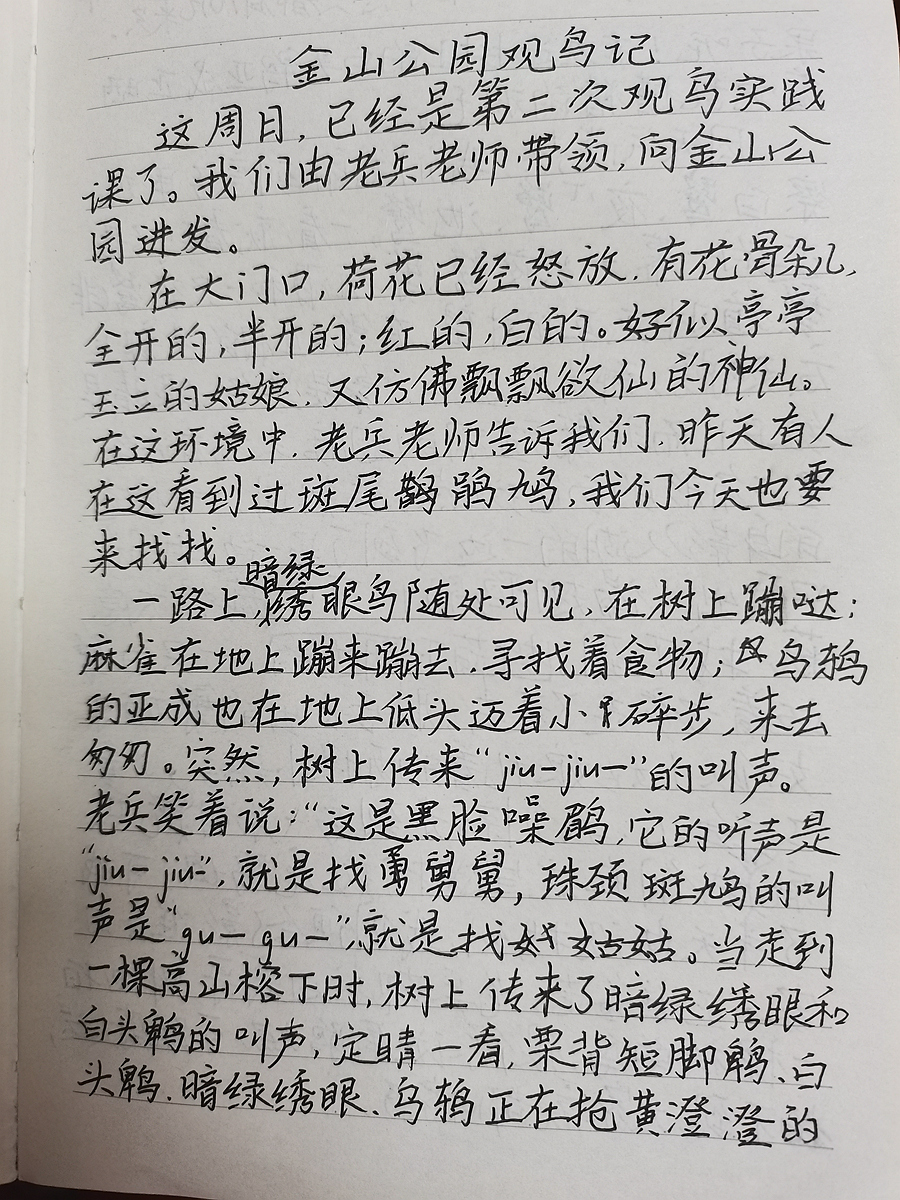 金山公园观鸟记
这周日，已经是第二次观鸟实践
课了。我们由老兵老师带领，向金山公
园进发。
在大门口，荷花已经怒放，有花骨朵儿，
全开的，半开的；红的，白的。好似亭亭
玉立的姑娘，又仿佛飘飘欲仙的神仙。
在这环境中，老兵老师告诉我们，昨天有人
在这看到过斑尾鹃鸠，我们今天也要
来找找。
暗绿
一路上，绣眼鸟随处可见，在树上蹦哒；
麻雀在地上蹦来蹦去，寻找着食物；乌鸫
的亚成也在地上低头迈着小碎步，来去
匆匆。突然，树上传来“jiu-jiu-”的叫声。
老兵笑着说：“这是黑脸噪鹛，它的听声是
“jiu-jiu-”，就是找舅舅，珠颈斑鸠的叫
声是“gu-gu-”，就是找姑姑。当走到
一棵高山榕下时，树上传来了暗绿绣眼和
白头鹎的叫声，定睛一看，栗背短脚鹎、白
头鹎、暗绿绣眼、乌鸫正在抢黄澄澄的